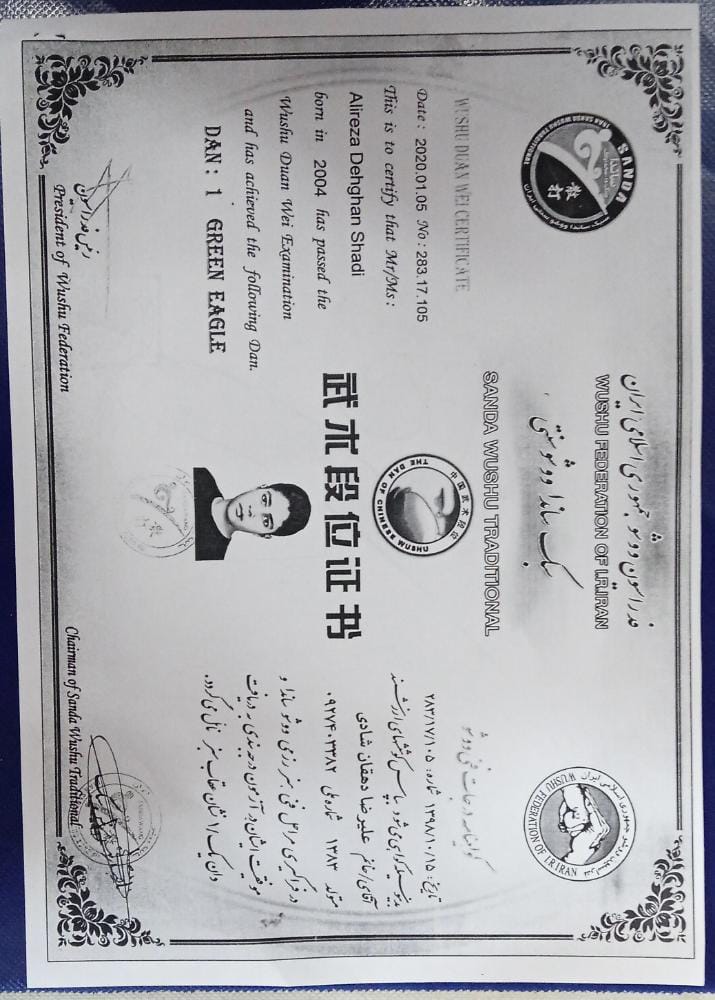 فدراسیون ووشو جمهوری اسلامی ایران
WUSHU FEDERATION OF I.R.IRAN
سبک ساندا ووشو سنتی
SANDA WUSHU TRADITIONAL
SANDA
ساندا
散打
IRAN SANDA WUSHU TRADITIONAL
سبک ساندا ووشو سنتی ایران
WUSHU FEDERATION OF I.R.IRAN
中国武术段位
THE DAN OF CHINESE WUSHU
武术段位证书
WUSHU DUAN WEI CERTIFICATE
Date: 2020.01.05 No: 283.17.105
This is to certify that Mr/Ms:
Alireza Dehghan Shadi
born in 2004 has passed the
Wushu Duan Wei Examination
and has achieved the following Dan.
DAN: 1 GREEN EAGLE
گواهینامه درجات فنی ووشو
تاریخ: ۱۳۹۸/۱۰/۱۵ شماره: ۲۸۳/۱۷/۱۰۵
بدینوسیله گواهی می شود با سپاس کوششهای ارزشمند
آقای/خانم علیرضا دهقان شادی
متولد ۱۳۸۳ شماره ملی
در فراگیری مراحل فنی هنر رزمی ووشو ساندا و
موفقیت ایشان در آزمون درجه بندی به دریافت
دان یک نشان عقاب سبز نائل می گردد.
رئیس فدراسیون
President of Wushu Federation
Chairman of Sanda Wushu Traditional